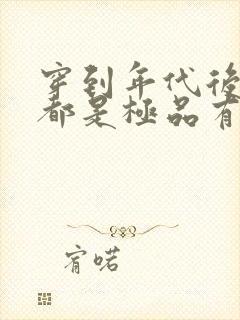 穿到年代後
都是極品有
宥喏